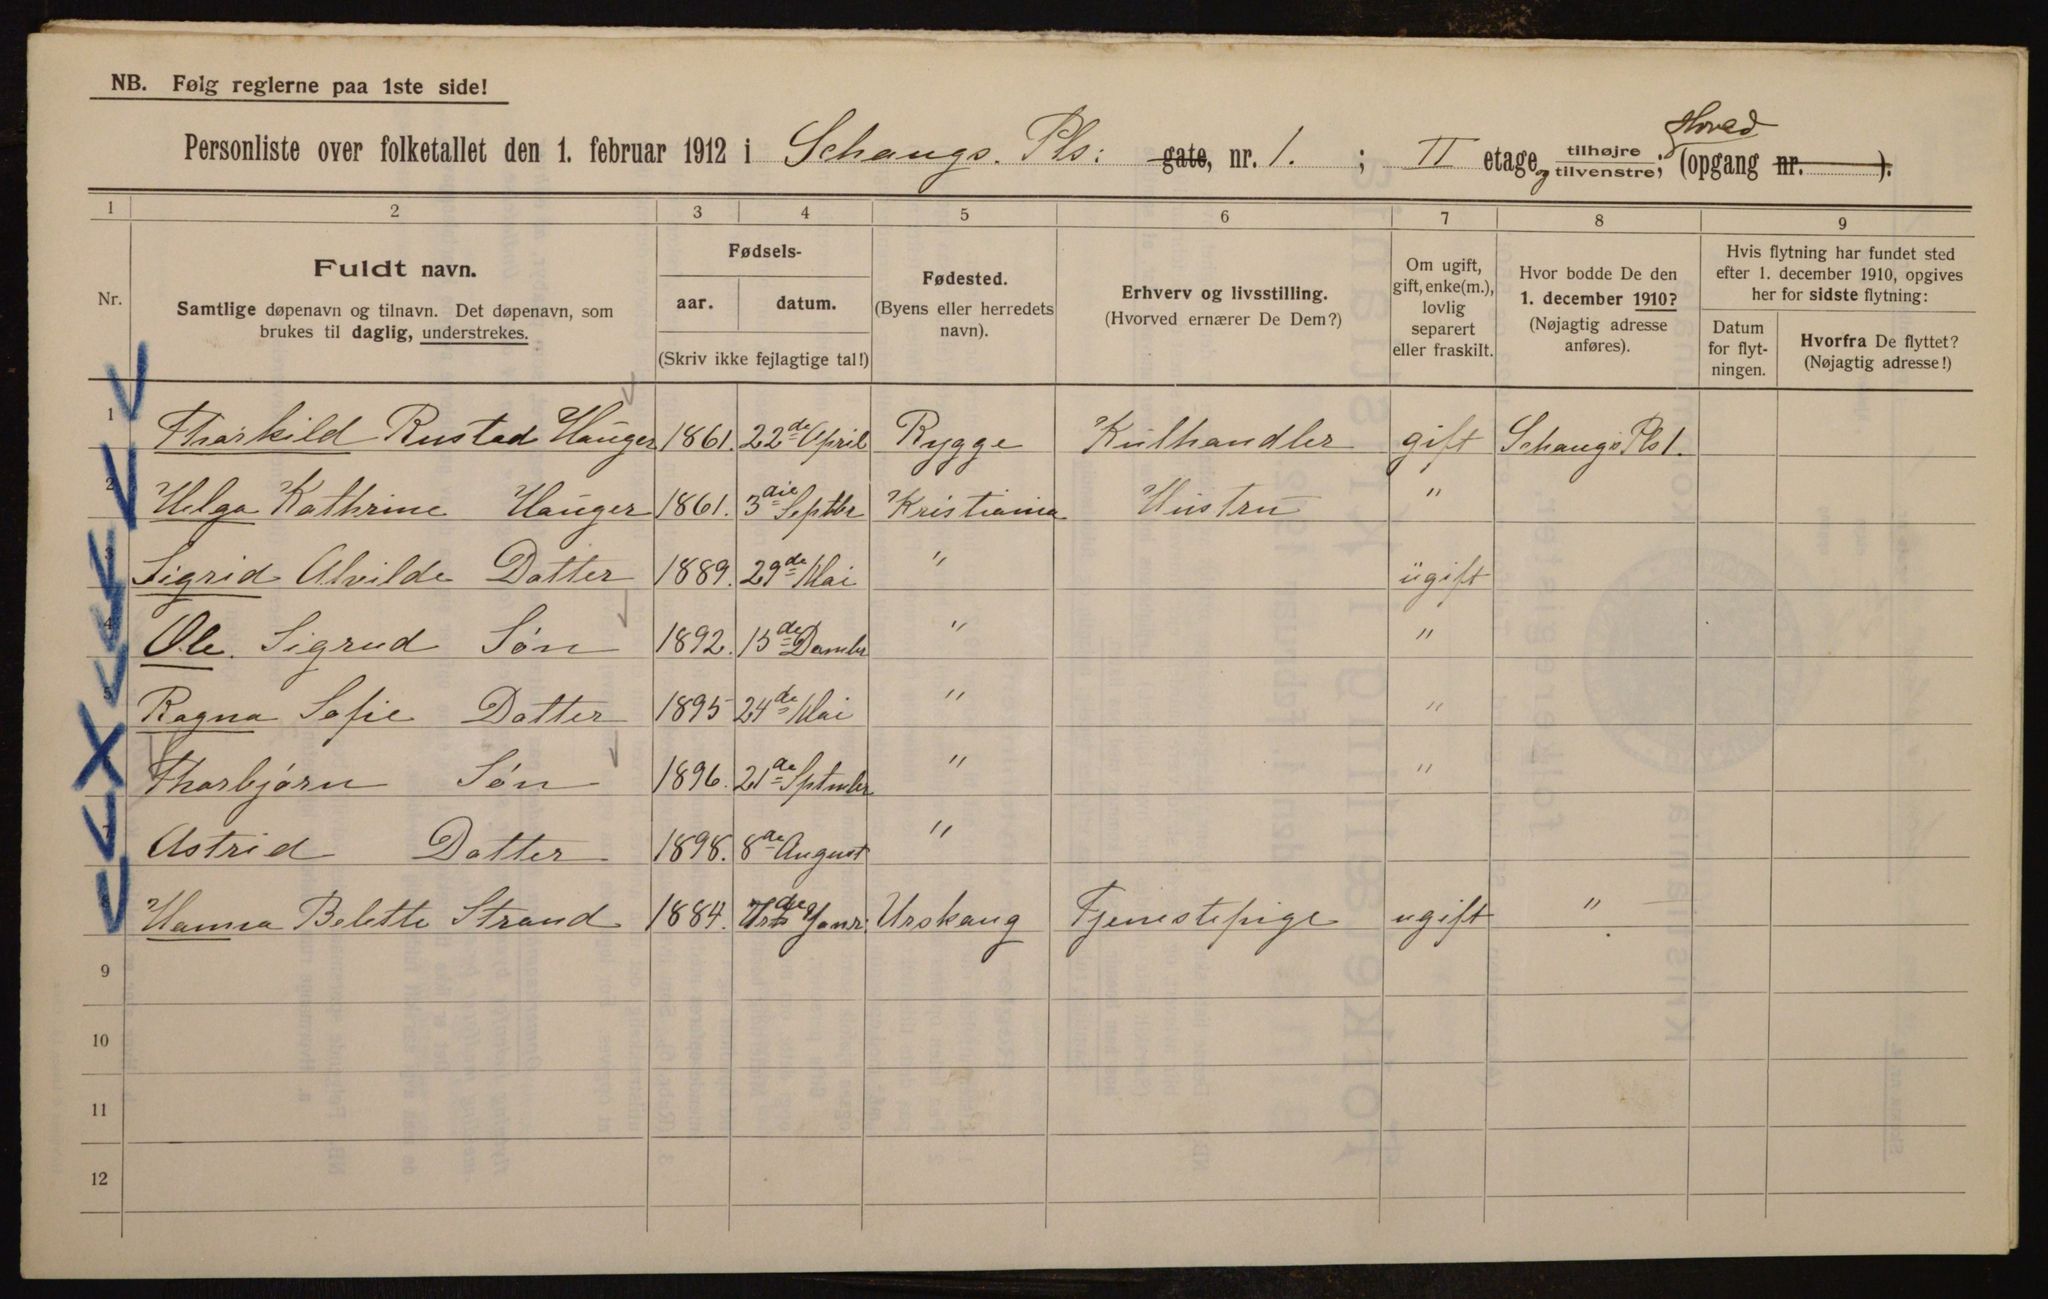 NB. Følg reglerne paa 1ste side!
Hoved
Personliste over folketallet den 1. februar 1912 i Schaugs. Pls: gate, nr. 1. ; II etage og tilhøjre tilvenstre; (opgang nr. ).
1 2 3 4 5 6 7 8 9
Nr.
Fuldt navn.
Samtlige døpenavn og tilnavn. Det døpenavn, som
brukes til daglig, understrekes.
Fødsels-
aar. datum.
(Skriv ikke fejlagtige tal!)
Fødested.
(Byens eller herredets
navn).
Erhverv og livsstilling.
(Hvorved ernærer De Dem?)
Om ugift,
gift, enke(m.),
lovlig
separert
eller fraskilt.
Hvor bodde De den
1. december 1910?
(Nøjagtig adresse
anføres).
Hvis flytning har fundet sted
efter 1. december 1910, opgives
her for sidste flytning:
Datum
for flyt-
ningen.
Hvorfra De flyttet?
(Nøjagtig adresse!)
1 Thorkild Rustad Hauger 1861. 22de April Rygge Kulhandler gift Schaugs Pls 1.
2 Helga Kathrine Hauger 1861. 3die Septbr Kristiania Hustru "
3 Sigrid Alvilde Datter 1889. 29de Mai " ugift
4 Ole. Sigrud Søn 1892. 15de "  "
5 Ragna Sofie Datter 1895 24de Mai " "
Thorbjørn Søn 1896. 21de Septmbr " "
7 Astrid Datter 1898. 8de August "
Hanna Belette Strand 1884. Janr: Urskaug Tjenestepige ugift "
9
10
11
12